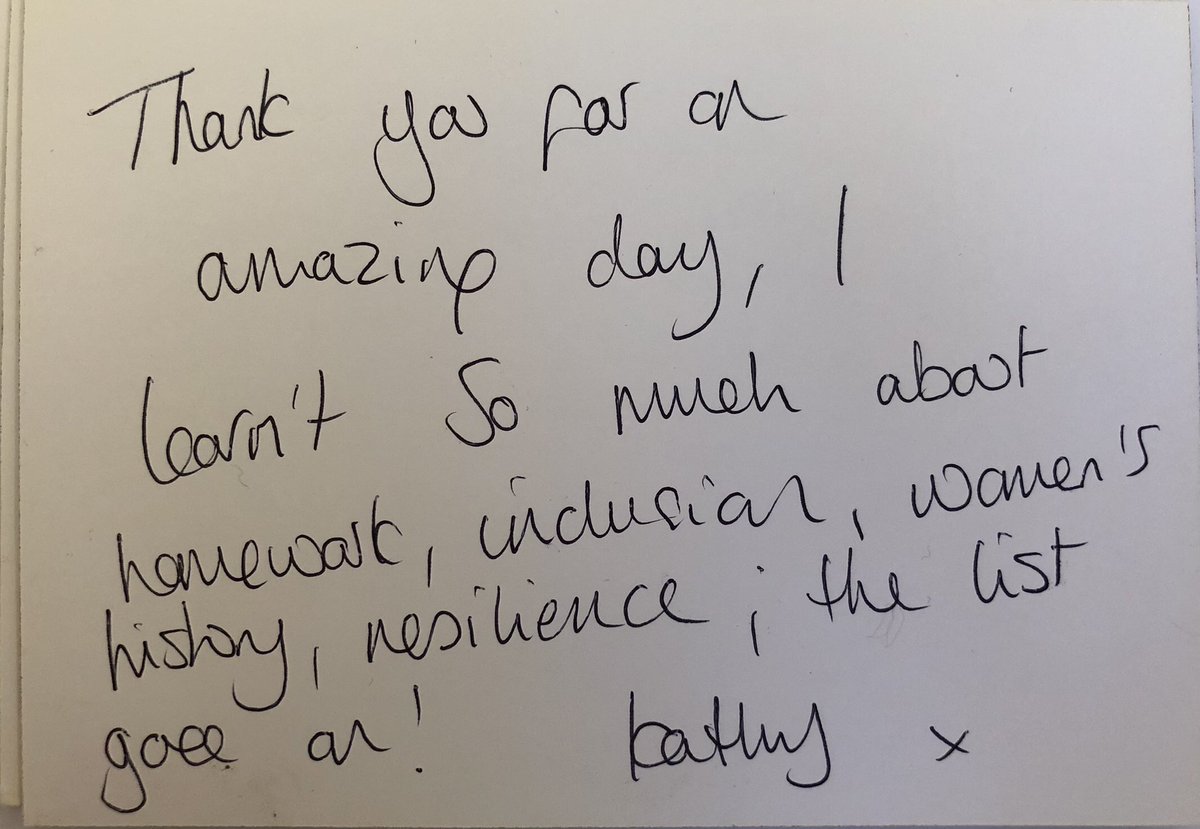 Thank you for an
amazing day, I
learn't so much about
homework, inclusion, women's
history, resilience; the list
goes on! Kathy x